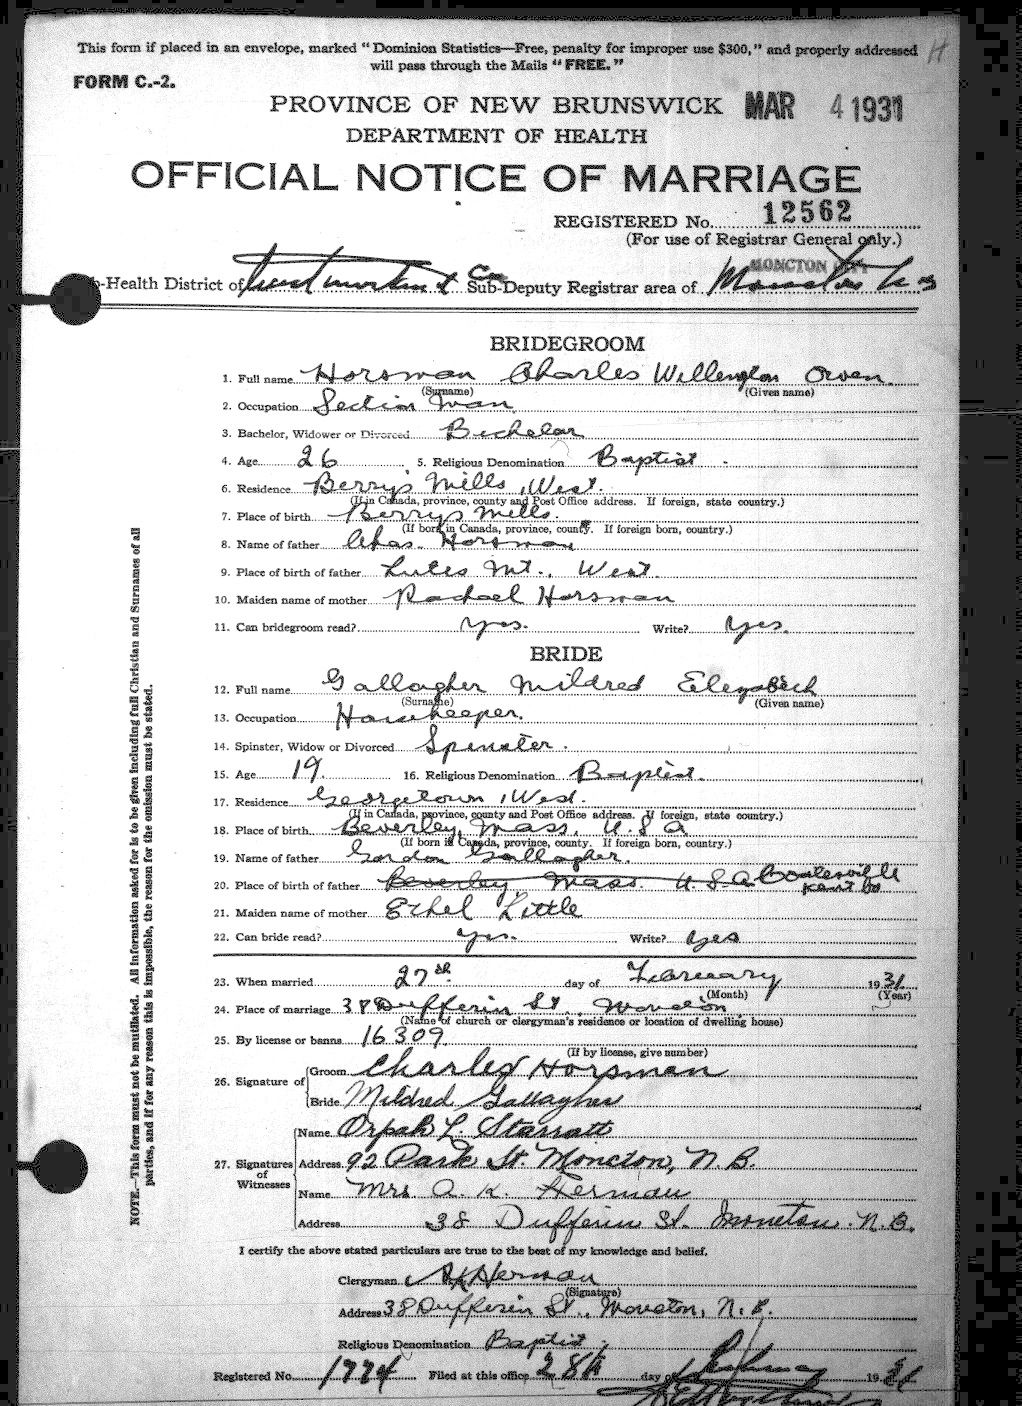 This form if placed in an envelope, marked "Dominion Statistics—Free, penalty for improper use $300," and properly addressed
will pass through the Mails "FREE."
H
FORM C.-2.
PROVINCE OF NEW BRUNSWICK MAR 4 1931
DEPARTMENT OF HEALTH
OFFICIAL NOTICE OF MARRIAGE
REGISTERED No. 12562
(For use of Registrar General only.)
MONCTON CITY
b-Health District of Westmorland Co Sub-Deputy Registrar area of Moncton
BRIDEGROOM
1. Full name Horsman Charles Wellington Owen
(Surname) (Given name)
2. Occupation Section Man
3. Bachelor, Widower or Divorced Bachelor
4. Age 26 5. Religious Denomination Baptist
6. Residence Berry's Mills, West.
(If in Canada, province, county and Post Office address. If foreign, state country.)
7. Place of birth Berrys Mills.
(If born in Canada, province, county. If foreign born, country.)
8. Name of father Chas. Horsman
9. Place of birth of father Lutes Mt., West.
10. Maiden name of mother Rachael Horsman
11. Can bridegroom read? yes. Write? yes.
BRIDE
12. Full name Gallagher Mildred Elizabeth
(Surname) (Given name)
13. Occupation Housekeeper.
14. Spinster, Widow or Divorced Spinster.
15. Age 19. 16. Religious Denomination Baptist.
17. Residence Georgetown, West.
(If in Canada, province, county and Post Office address. If foreign, state country.)
18. Place of birth Beverley, Mass. U.S.A
(If born in Canada, province, county. If foreign born, country.)
19. Name of father Gordon Gallagher.
20. Place of birth of father Beverley, Mass. U.S.A. Coatesville
Kent Co
21. Maiden name of mother Ethel Little
22. Can bride read? yes. Write? yes
23. When married 27th day of February 1931
(Month) (Year)
24. Place of marriage 38 Dufferin St., Moncton
(Name of church or clergyman's residence or location of dwelling house)
25. By license or banns 16309
(If by license, give number)
26. Signature of Groom Charles Horsman
Bride Mildred Gallagher
27. Signatures of Witnesses
Name Orpah L. Starratt
Address 92 Park St. Moncton, N.B.
Name Mrs A. K. Herman
Address 38 Dufferin St. Moncton. N.B.
I certify the above stated particulars are true to the best of my knowledge and belief.
Clergyman A K Herman
(Signature)
Address 38 Dufferin St., Moncton, N.B.
Religious Denomination Baptist
Registered No. 1774 Filed at this office 28th day of February 1931
NOTE.—This form must not be mutilated. All information asked for is to be given including full Christian and Surnames of all
parties, and if for any reason this is impossible, the reason for the omission must be stated.